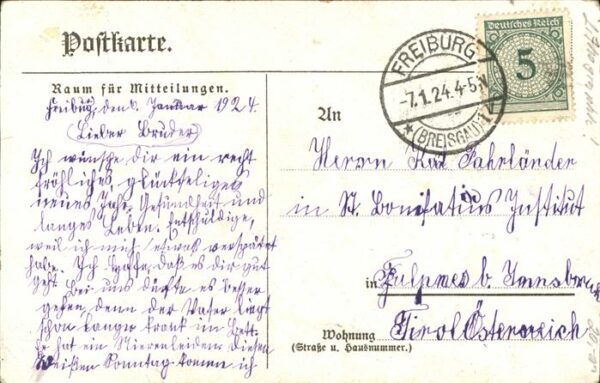 Postkarte.
Deutsches Reich
5
FREIBURG
-7.1.24.4-5N
(BREISGAU) 1
Raum für Mitteilungen.
Freibug, den 6. Januar 1924.
Lieber Bruder
Ich wünsche dir ein recht
fröhliches glückseliges
neues Jahr, Gesundheit und
langes Leben. Entschuldige,
weil ich mich etwas verspätet
habe. Ich hoffe, daß es dir gut
geht bei uns dürfte es besser
gehen, denn der Vater liegt
schon langer krank im Bett.
Er hat ein Nierenleiden diesen
Weißen Sonntag komm ich
An
Herrn Fahrländer
in St. Bonifatius Institut
in Fulpmes b. Innsbruck
Wohnung Tirol Österreich
(Straße u. Hausnummer.)